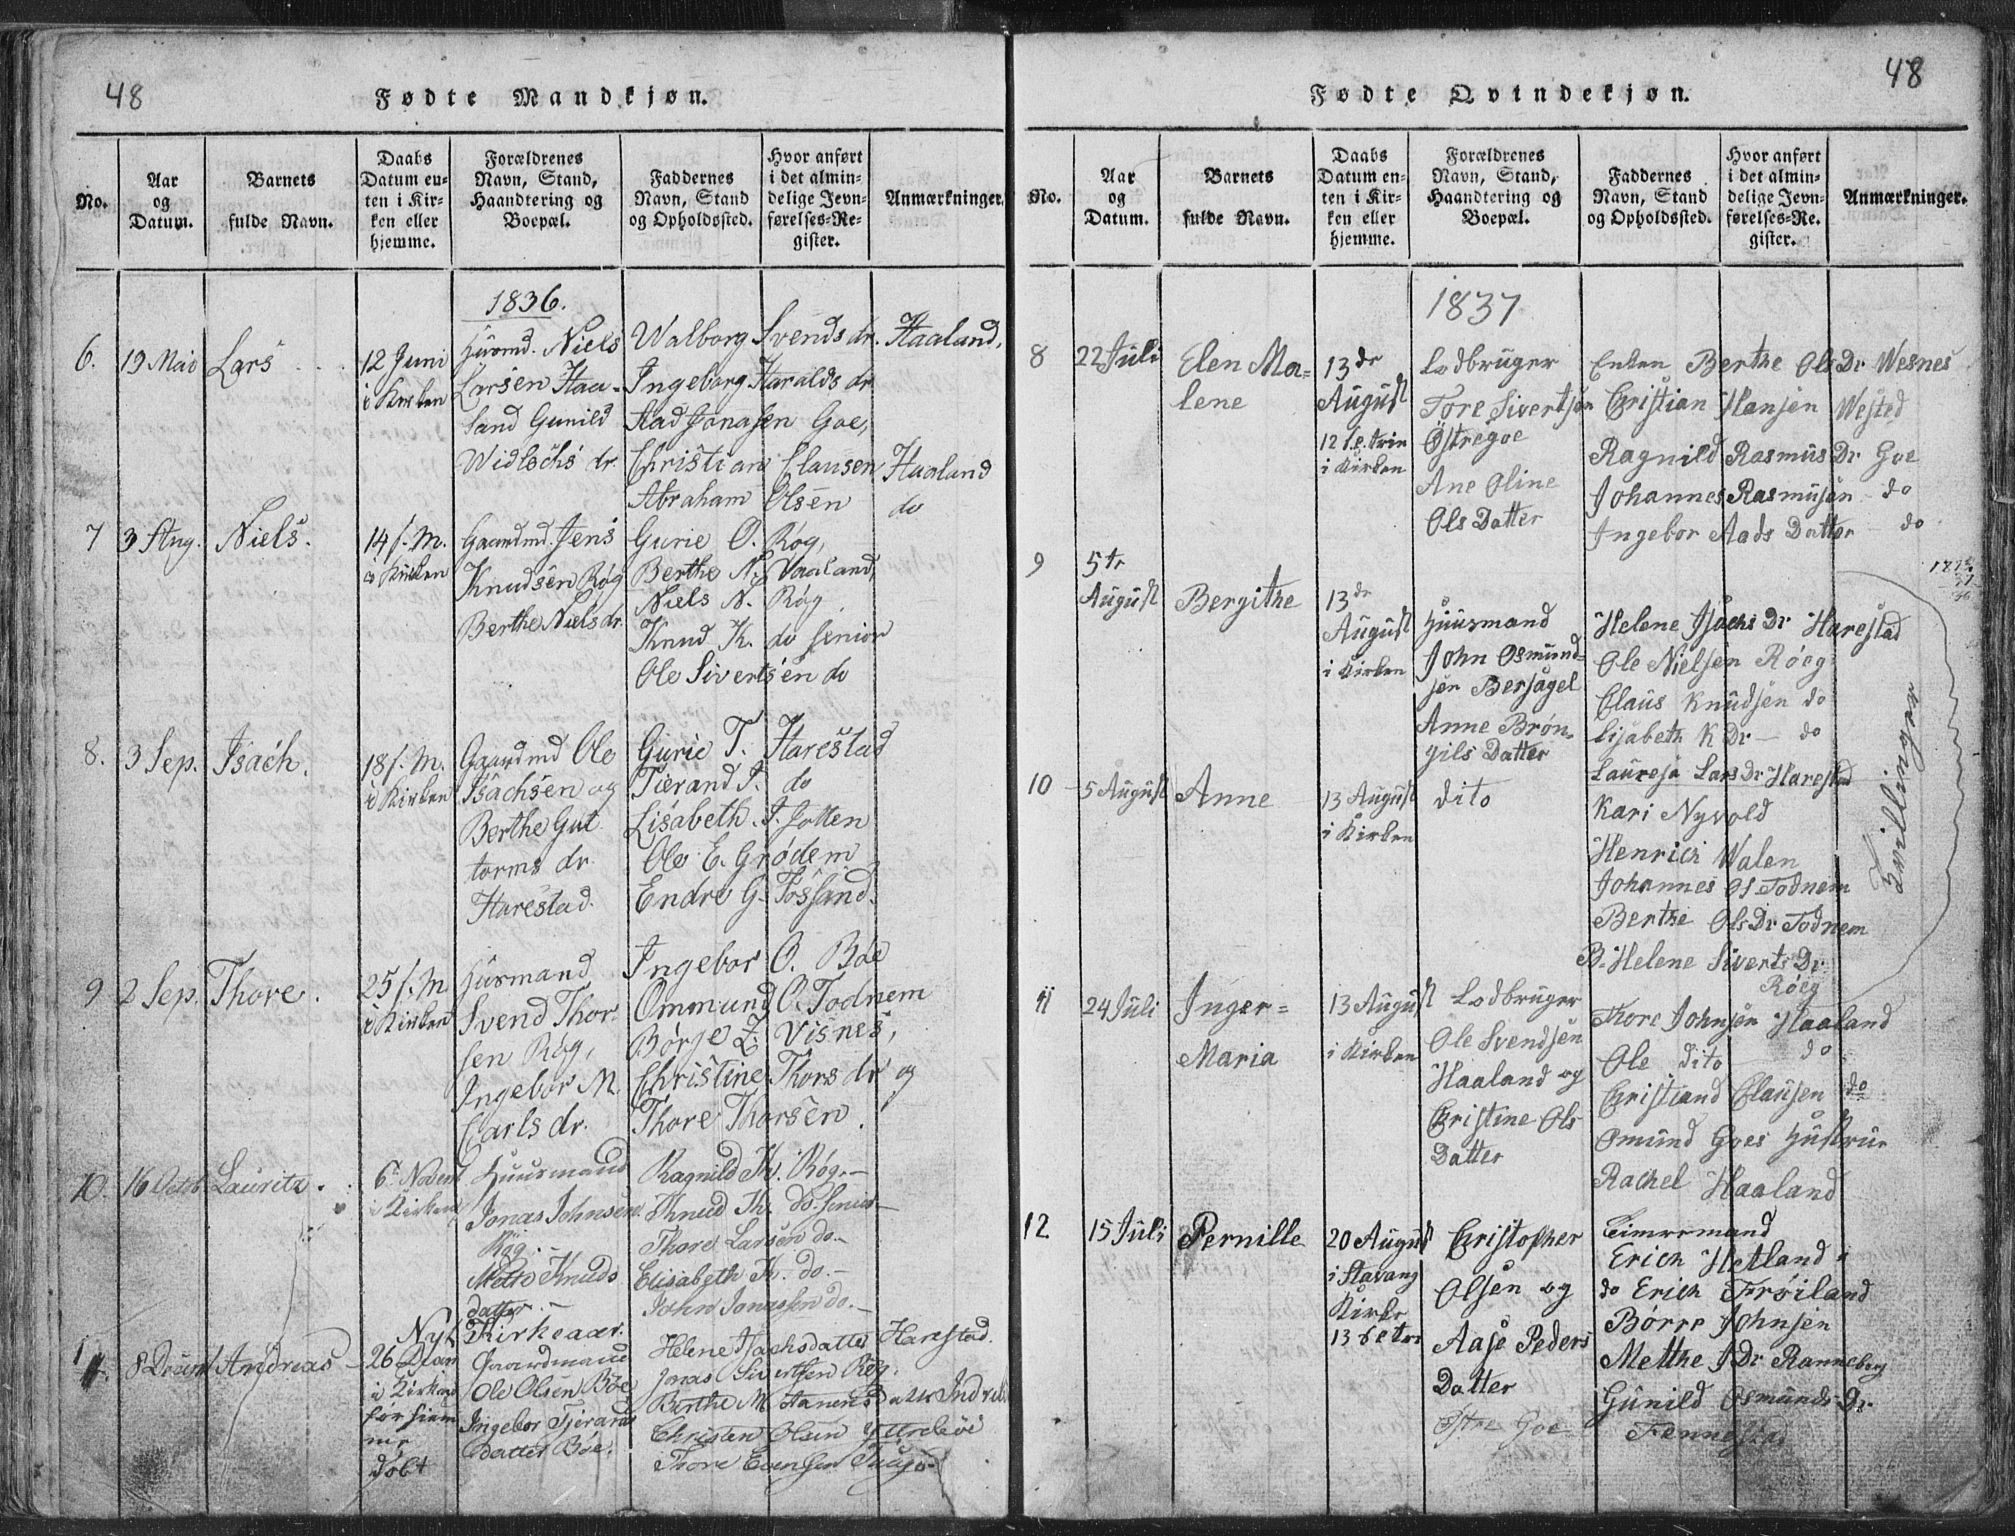 48
Fødte Mandkjøn.
No.
Aar
og
Datum.
Barnets
fulde Navn.
Daabs
Datum en-
ten i Kir-
ken eller
hjemme.
Forældrenes
Navn, Stand,
Haandtering og
Boepæl.
Faddernes
Navn, Stand
og Opholdssted.
Hvor anført
i det almin-
delige Jevn-
førelses-Re-
gister.
Anmærkninger.
1836.
6.
19 Mai
Lars
12 Juni
i Kirken
Huusmd. Niels
Larsen Haa-
land Gunild
Widlochs dr.
Walborg Svends dr. Haaland,
Ingeborg Haralds dr
Aad Jonasen Goe,
Christian Clausen Haaland
Abraham Olsen do
7
3 Aug.
Niels.
14 f. M.
i Kirken
Gaardmd. Jens
Knudsen Røg
Berthe Niels dr.
Gurie O. Røg,
Berthe N. Vaaland,
Niels N. Røg,
Knud K. do senior
Ole Sivertsen do
8.
3 Sep.
Isach.
18 f. M.
i Kirken
Gaardmd Ole
Isachsen og
Berthe Gut
torms dr.
Harestad.
Gurie T. Harestad
Tierand I. do
Lisabeth I. Jotten
Ole E. Grødem
Endre G. Fossand.
9
2 Sep.
Thore.
25 f. M
i Kirken
Husmand
Svend Thor-
sen Røg,
Ingebor M.
Carls dr.
Ingebor O. Bøe
Ommund O. Todnem
Børge L. Visnes,
Christine Thors dr og
Thore Thorsen.
10.
16 Octb
Lauritz.
6 Novem
i Kirken
Huusmand
Jonas Johnsen
Røg.
Mette Knuds
datter.
Ragnild Th. Røg.
Knud Th. do. senior
Thore Larsen do
Elisabeth K. do.
John Jonassen do.
Nyt Kirkeaar.
11.
Andreas
26 Decm
i Kirken
før hiem
me
døbt
Gaardmand
Ole Olsen Bøe
Ingebor Tjerands
datter Bøe.
Helene Isachsdatter Harestad.
Jonas Sivertsen Røg.
Christen Olsen Yttrebøe
48
Fødte Qvindekjøn.
No.
Aar
og
Datum.
Barnets
fulde Navn.
Daabs
Datum en-
ten i Kir-
ken eller
hjemme.
Forældrenes
Navn, Stand,
Haandtering og
Boepæl.
Faddernes
Navn, Stand
og Opholdssted.
Hvor anført
i det almin-
delige Jevn-
førelses-Re-
gister.
Anmærkninger.
1837
8
22 Juli
Elen Ma=
lene
13 de
August
12 s.e. trin
i Kirken
Lodbruger
Tore Sivertsen
Østregoe
Ane Oline
Ols Datter
Enken Berthe Ols Dr Wesnes
Christian Hansen Wested
Ragnild Rasmus Dr Goe
Johannes Rasmusen do
Ingebor Aads Datter do
9
5te
August
Bergithe
13 de
August
i Kirken
Huusmand
John Osmund=
sen Bersagel
Anne Brøn-
gils Datter
Helene Isachs Dr Harestad
Ole Nielsen Røeg
Claus Knudsen do
Lisabeth K Dr — do
Lauresa Lars Dr Harestad
10
5 August
Anne
13 August
i Kirken
dito
Kari Nyvold
Henrich Walen
Johannes Ols. Todnem
Berthe Ols Dr Todnem
B. Helene Siverts Dr
Røeg
Tvillinger
11
24 Juli
Inger=
Maria
13 August
i Kirken
Lodbruger
Ole Svendsen
Haaland og
Christine Ols
Datter
Thore Johnsen Haaland
Ole dito do
Christiand Clausen do
Osmund Goes Hustrue
Rachel Haaland
12
15 Juli
Pernille
20 August
i Stavang
Kirke
Christopher
Olsen og
Aase Peders
Datter
Østre Goe
Timermand
Erich Hetland
do Erich Frøiland
Børre Johnsen
Metthe J Dr Ranneberg
Gunild Osmunds Dr
Fennestad